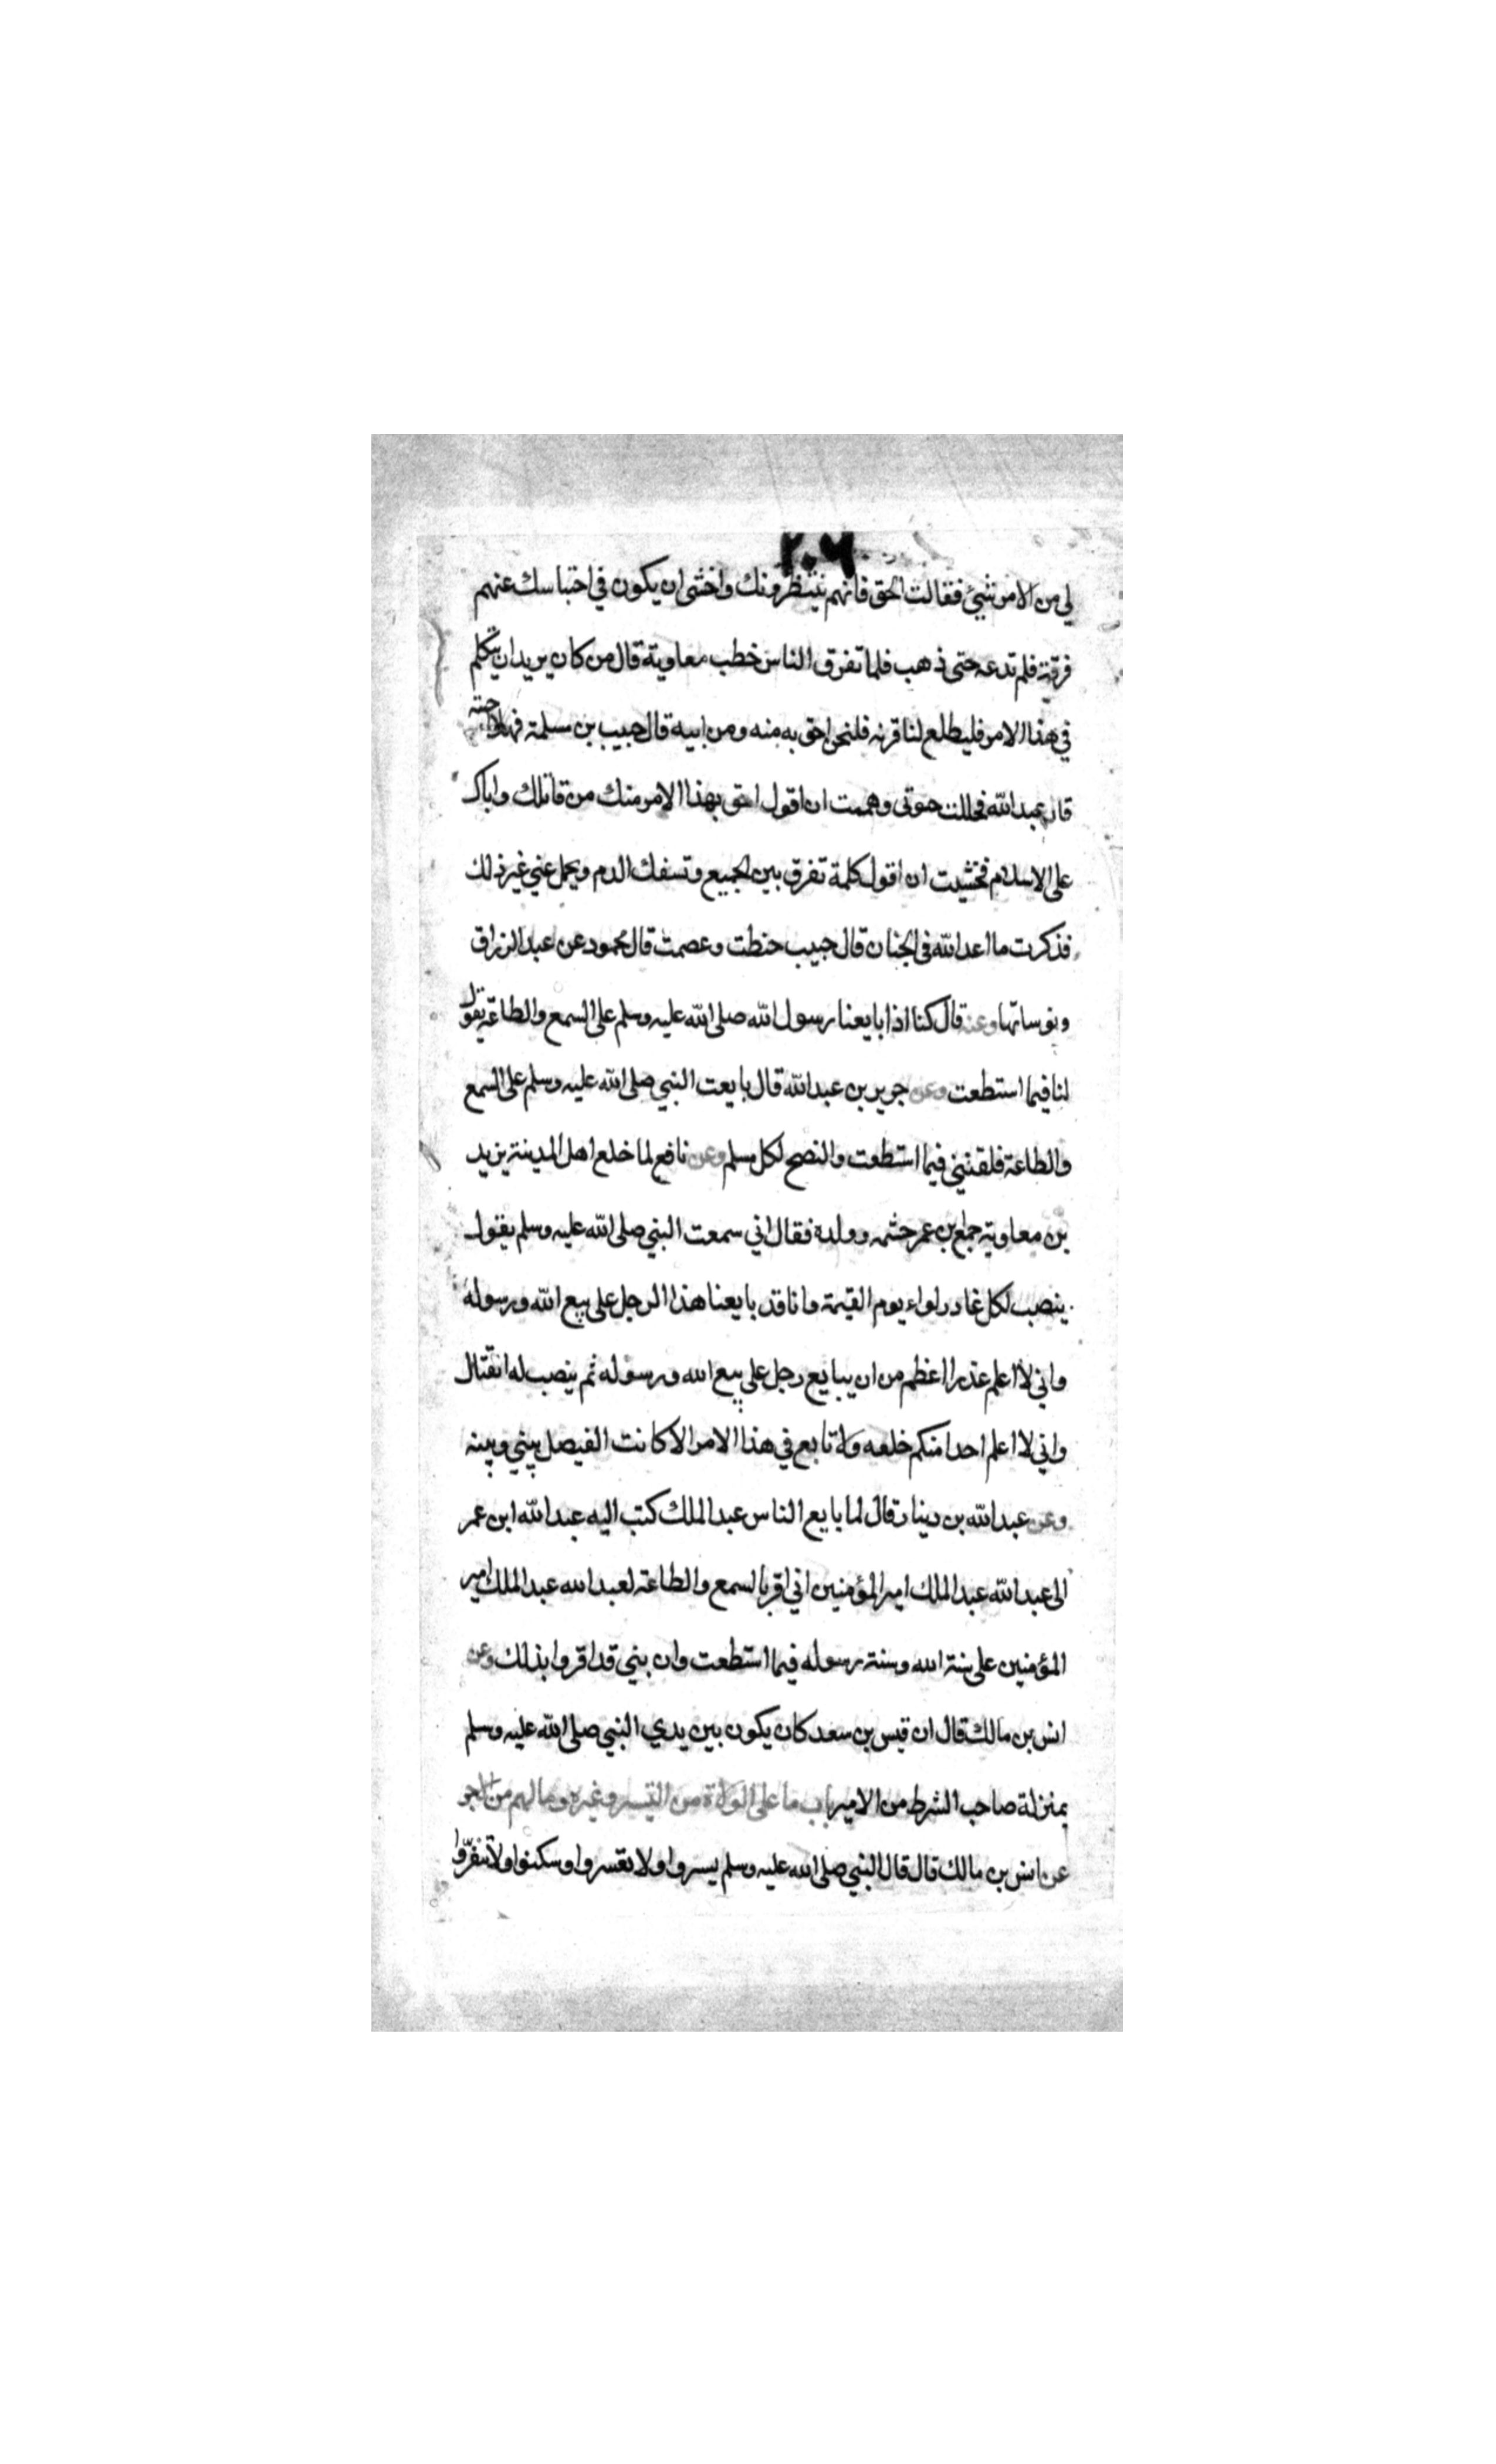 ٢٠٦
لي من الامر شيئ فقالت الحق فانهم ينتظرونك واخشى ان يكون في احتباسك عنهم
فرقة فلم تدعه حتى ذهب فلما تفرق الناس خطب معاوية قال من كان يريد ان يتكلم
في هذا الامر فليطلع لنا قرنه فلنحن احق به منه ومن ابيه قال حبيب بن مسلمة فهلا اجبته
قال عبد الله فحللت حبوتي وهممت ان اقول احق بهذا الامر منك من قاتلك واباك
على الاسلام فخشيت ان اقول كلمة تفرق بين الجميع وتسفك الدم ويحمل عني غير ذلك
فذكرت ما اعد الله في الجنان قال حبيب حفظت وعصمت قال محمود عن عبد الرزاق
ونوساتها وعنه قال كنا اذا بايعنا رسول الله صلى الله عليه وسلم على السمع والطاعة يقول
لنا فيما استطعت وعن جرير بن عبد الله قال بايعت النبي صلى الله عليه وسلم على السمع
والطاعة فلقنني فيما استطعت والنصح لكل مسلم وعن نافع لما خلع اهل المدينة يزيد
بن معاوية جمع بن عمر حشمه وولده فقال اني سمعت النبي صلى الله عليه وسلم يقول
ينصب لكل غادر لواء يوم القيمة وانا قد بايعنا هذا الرجل على بيع الله ورسوله
واني لا اعلم عذرا اعظم من ان يبايع رجل على بيع الله ورسوله ثم ينصب له القتال
واني لا اعلم احدا منكم خلعه ولا تابع في هذا الامر الا كانت الفيصل بيني وبينه
وعن عبد الله بن دينار قال لما بايع الناس عبد الملك كتب اليه عبد الله ابن عمر
الى عبد الله عبد الملك امير المؤمنين اني اقر بالسمع والطاعة لعبد الله عبد الملك امير
المؤمنين على سنة الله وسنة رسوله فيما استطعت وان بني قد اقروا بذلك وعن
انس بن مالك قال ان قيس بن سعد كان يكون بين يدي النبي صلى الله عليه وسلم
بمنزلة صاحب الشرط من الامير باب ما على الولاة من التيسير وغيره وما لهم من الاجر
عن انس بن مالك قال قال النبي صلى الله عليه وسلم يسروا ولا تعسروا وسكنوا ولا تنفروا